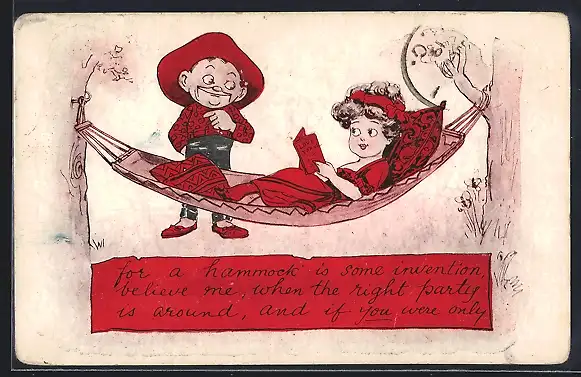 for a hammock is some invention,
believe me, when the right party
is around, and if you were only